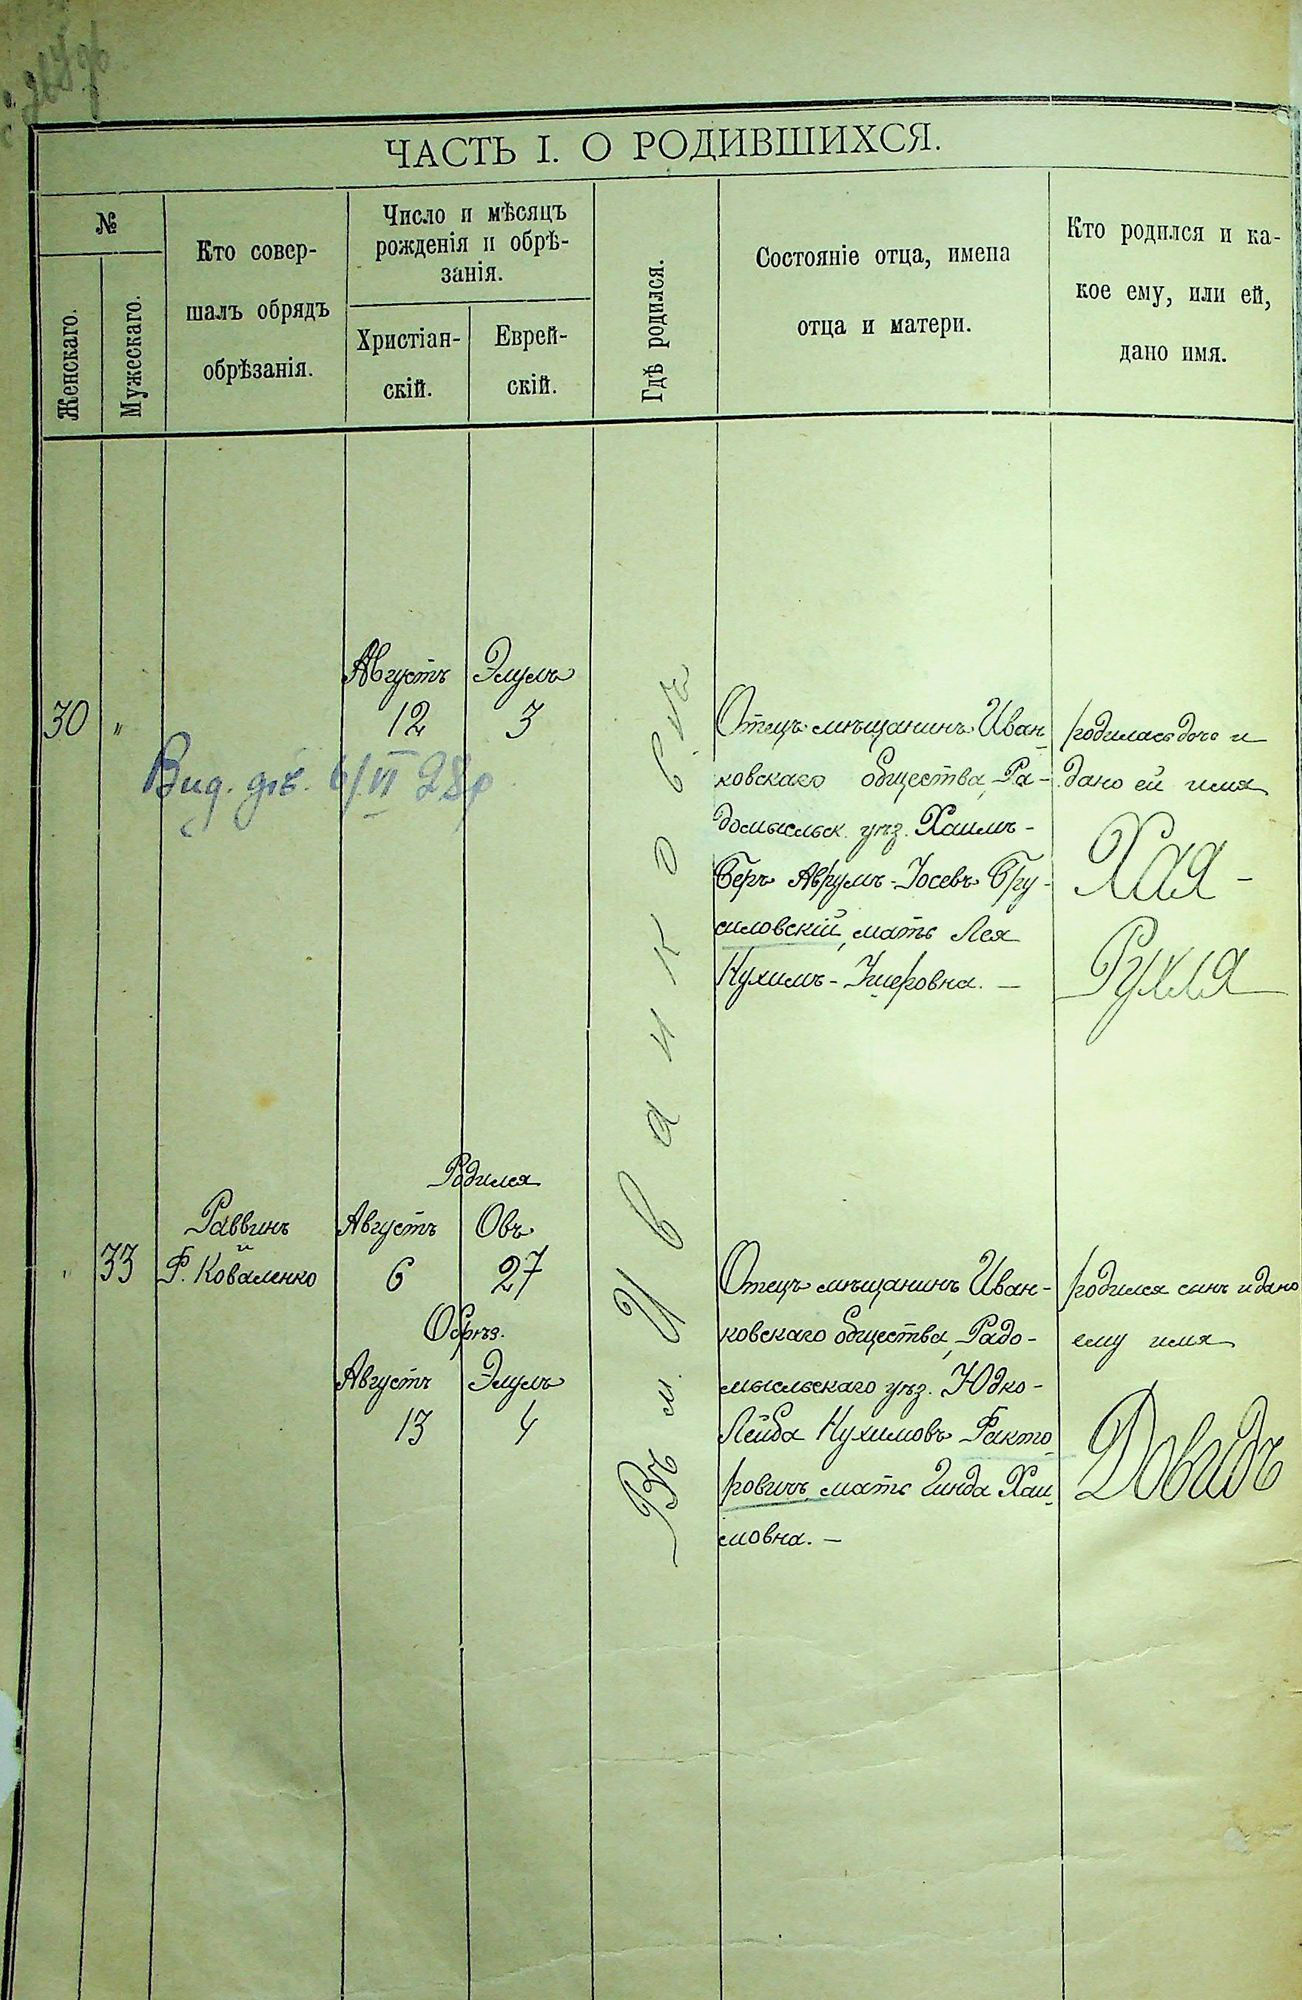 ЧАСТЬ I. О РОДИВШИХСЯ.
№
Женскаго.
Мужескаго.
Кто совер-
шалъ обрядъ
обрѣзанія.
Число и мѣсяцъ
рожденія и обрѣ-
занія.
Христіан-
скій.
Еврей-
скій.
Гдѣ родился.
Состояніе отца, имена
отца и матери.
Кто родился и ка-
кое ему, или ей,
дано имя.
Въ м. Иванковѣ
30
"
Августъ
12
Элулъ
3
Вид. дѣ. 6/VI 28р
Отецъ мѣщанинъ Иван-
ковскаго общества, Ра-
домысльск. уѣз. Хаимъ-
Беръ Аврумъ-Іосевъ Бру-
силовскій, мать Лея
Нухимъ-Ушеровна. —
родилась дочь и
дано ей имя
Хая -
Рухля
"
33
Раввинъ
и
Ф. Коваленко
Родился
Августъ
6
Овъ
27
Обрѣз.
Августъ
13
Элулъ
4
Отецъ мѣщанинъ Иван-
ковскаго общества, Радо-
мысльскаго уѣз. Юдко-
Лейба Нухимовъ Факто-
ровичъ, мать Гинда Хаи-
мовна. —
родился сынъ и дано
ему имя
Довидъ